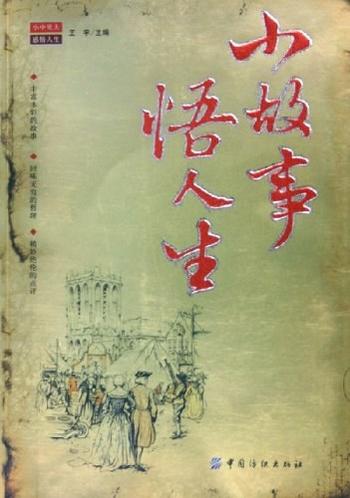 小中见大
感悟人生
王宇/主编
小故事
悟人生
丰富多彩的故事
回味无穷的哲理
精妙绝伦的点评
中国纺织出版社